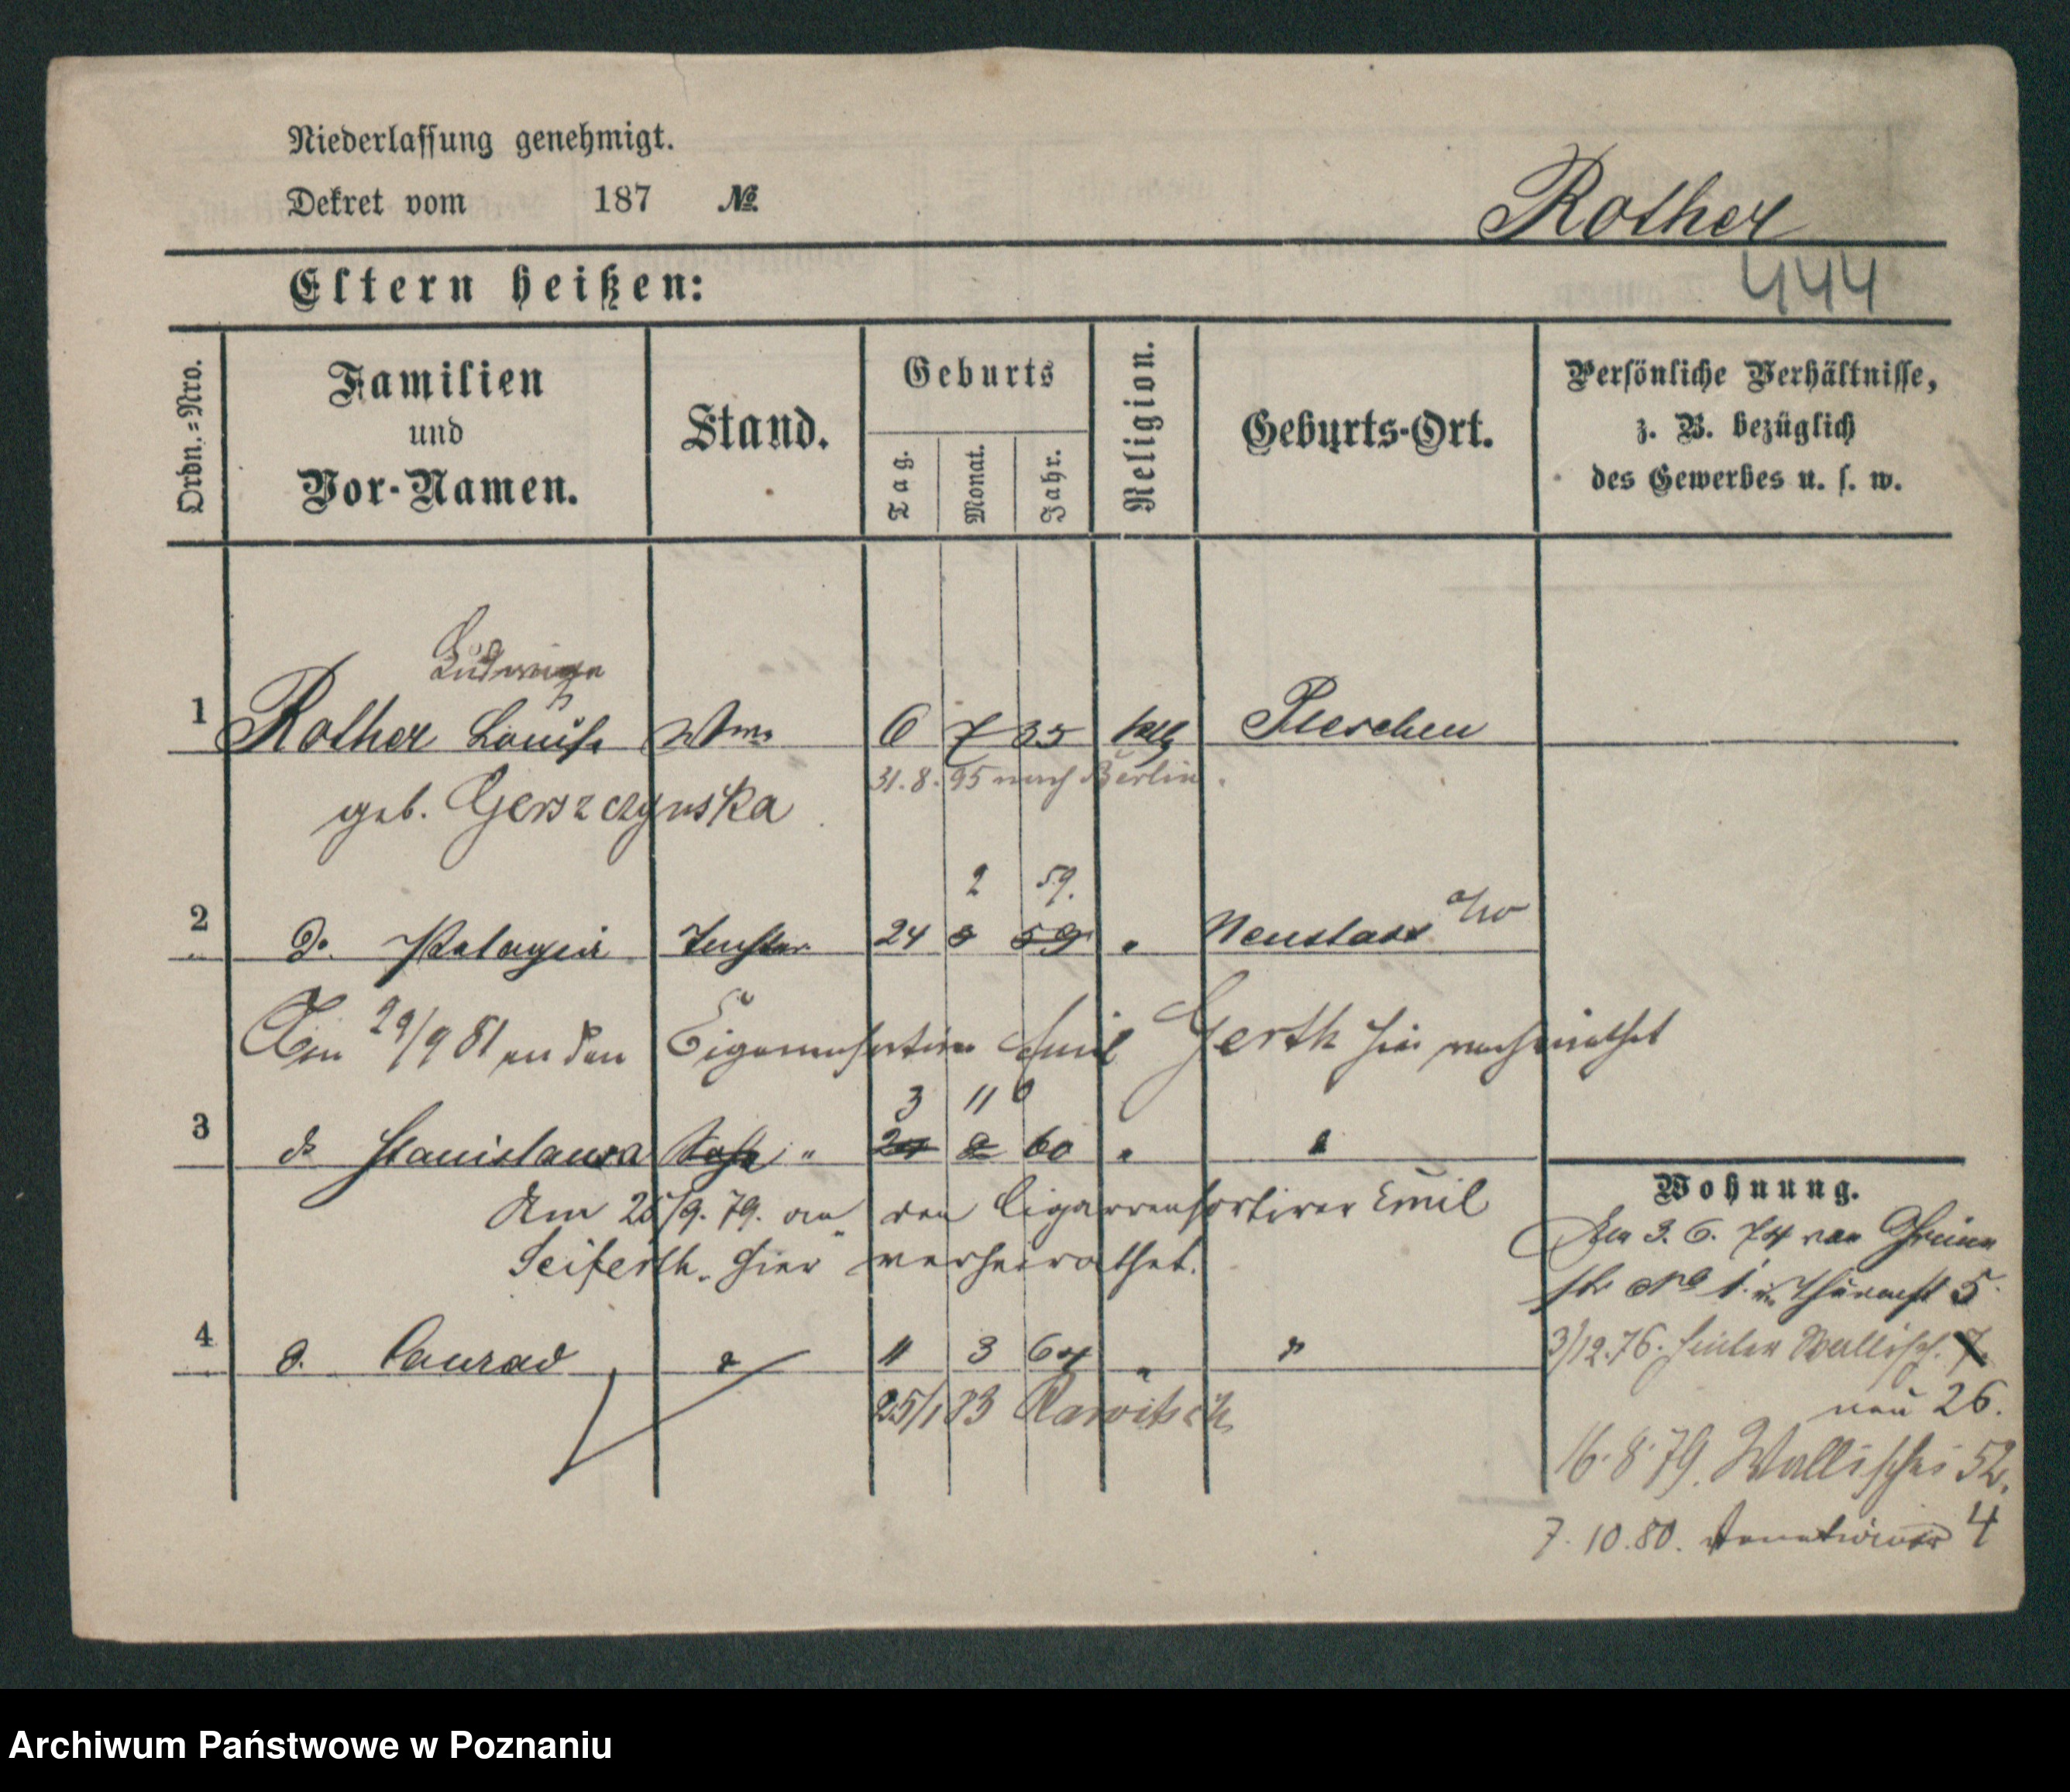 Niederlaſſung genehmigt.
Dekret vom 187 №
Rother
Eltern heißen:
444
Ordn.=Nro.
Familien und Vor-Namen.
Stand.
Geburts
Tag.
Monat.
Jahr.
Religion.
Geburts-Ort.
Perſönliche Verhältniſſe,
z. B. bezüglich
des Gewerbes u. ſ. w.
Ludwiga
1 Rother Louise Wwe 6 7 35 kath Pleschen
31. 8. 95 nach Berlin.
geb. Gerszczynska
2 59.
2 d. Pelagia Tochter 24 59 " Neustadt a/W
Am 29/9 81 an den Cigarrensortirer Emil Gerth hier verheirathet
3 11
3 d. Stanislawa " 60 "
Am 25/9. 79. an den Cigarrensortirer Emil
Seiferth. hier verheirathet.
4 d. Conrad 11 3 64 " "
25/1 83 Rawitsch
Wohnung.
Am 3. 6. 74 von
str No 1. 5.
3/12.76. hinter Wallisch. 7.
neu 26.
16. 8. 79. Wallischei 52.
7. 10. 80. 4
Archiwum Państwowe w Poznaniu